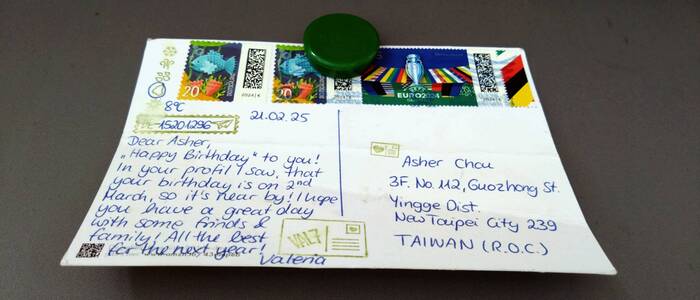 20
2024|4
20
2024|4
EURO2024
2024|4
8°C
21.02.25
15201296
Dear Asher,
"Happy Birthday" to you!
In your profil I saw, that
your birthday is on 2nd
March, so it's near by! I hope
you have a great day
with some frinds &
family! All the best
for the next year!
Valeria
VAL7
Asher Chou
3F. No. 112, Guozhong St.
Yingge Dist.
New Taipei City 239
TAIWAN (R.O.C.)